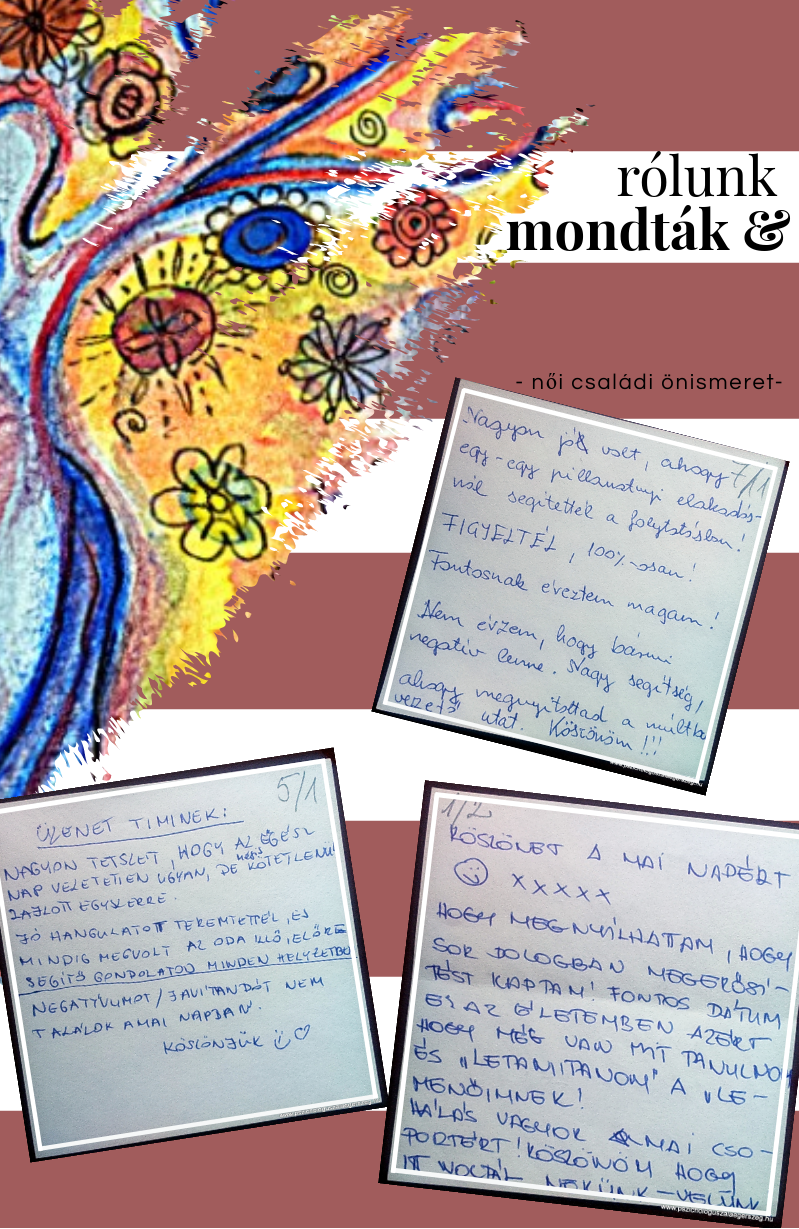 rólunk
mondták &
- női családi önismeret-
7/1
Nagyon jó volt, ahogy
egy-egy pillanatnyi elakadás-
nál segítettél a folytatásban!
FIGYELTÉL, 100%-osan!
Fontosnak éreztem magam!
Nem érzem, hogy bármi
negatív lenne. Nagy segítség,
ahogy megnyitottad a múltba
vezető utat. Köszönöm!!!
5/1
ÜZENET TIMINEK:
NAGYON TETSZETT, HOGY AZ EGÉSZ
NAP VEZETETTEN UGYAN, DE mégis KÖTETLENÜL
ZAJLOTT EGYSZERRE.
JÓ HANGULATOT TEREMTETTÉL, ÉS
MINDIG MEGVOLT AZ ODA ILLŐ, ELŐRE
SEGÍTŐ GONDOLATOD MINDEN HELYZETBEN.
NEGATÍVUMOT/JAVÍTANDÓT NEM
TALÁLOK A MAI NAPBAN.
KÖSZÖNJÜK
1/2
KÖSZÖNET A MAI NAPÉRT
x x x x x
HOGY MEGNYÍLHATTAM, HOGY
SOK DOLOGBAN MEGERŐSÍ-
TÉST KAPTAM! FONTOS DÁTUM
EZ AZ ÉLETEMBEN AZÉRT
HOGY MÉG VAN MIT TANULNOM
ÉS „LETANÍTANOM" A „LE-
MENŐIMNEK!
HÁLÁS VAGYOK A MAI CSO-
PORTÉRT! KÖSZÖNÖM HOGY
ITT VOLTÁL NEKÜNK - VELÜNK
www.pszichologuszalaegerszeg.hu